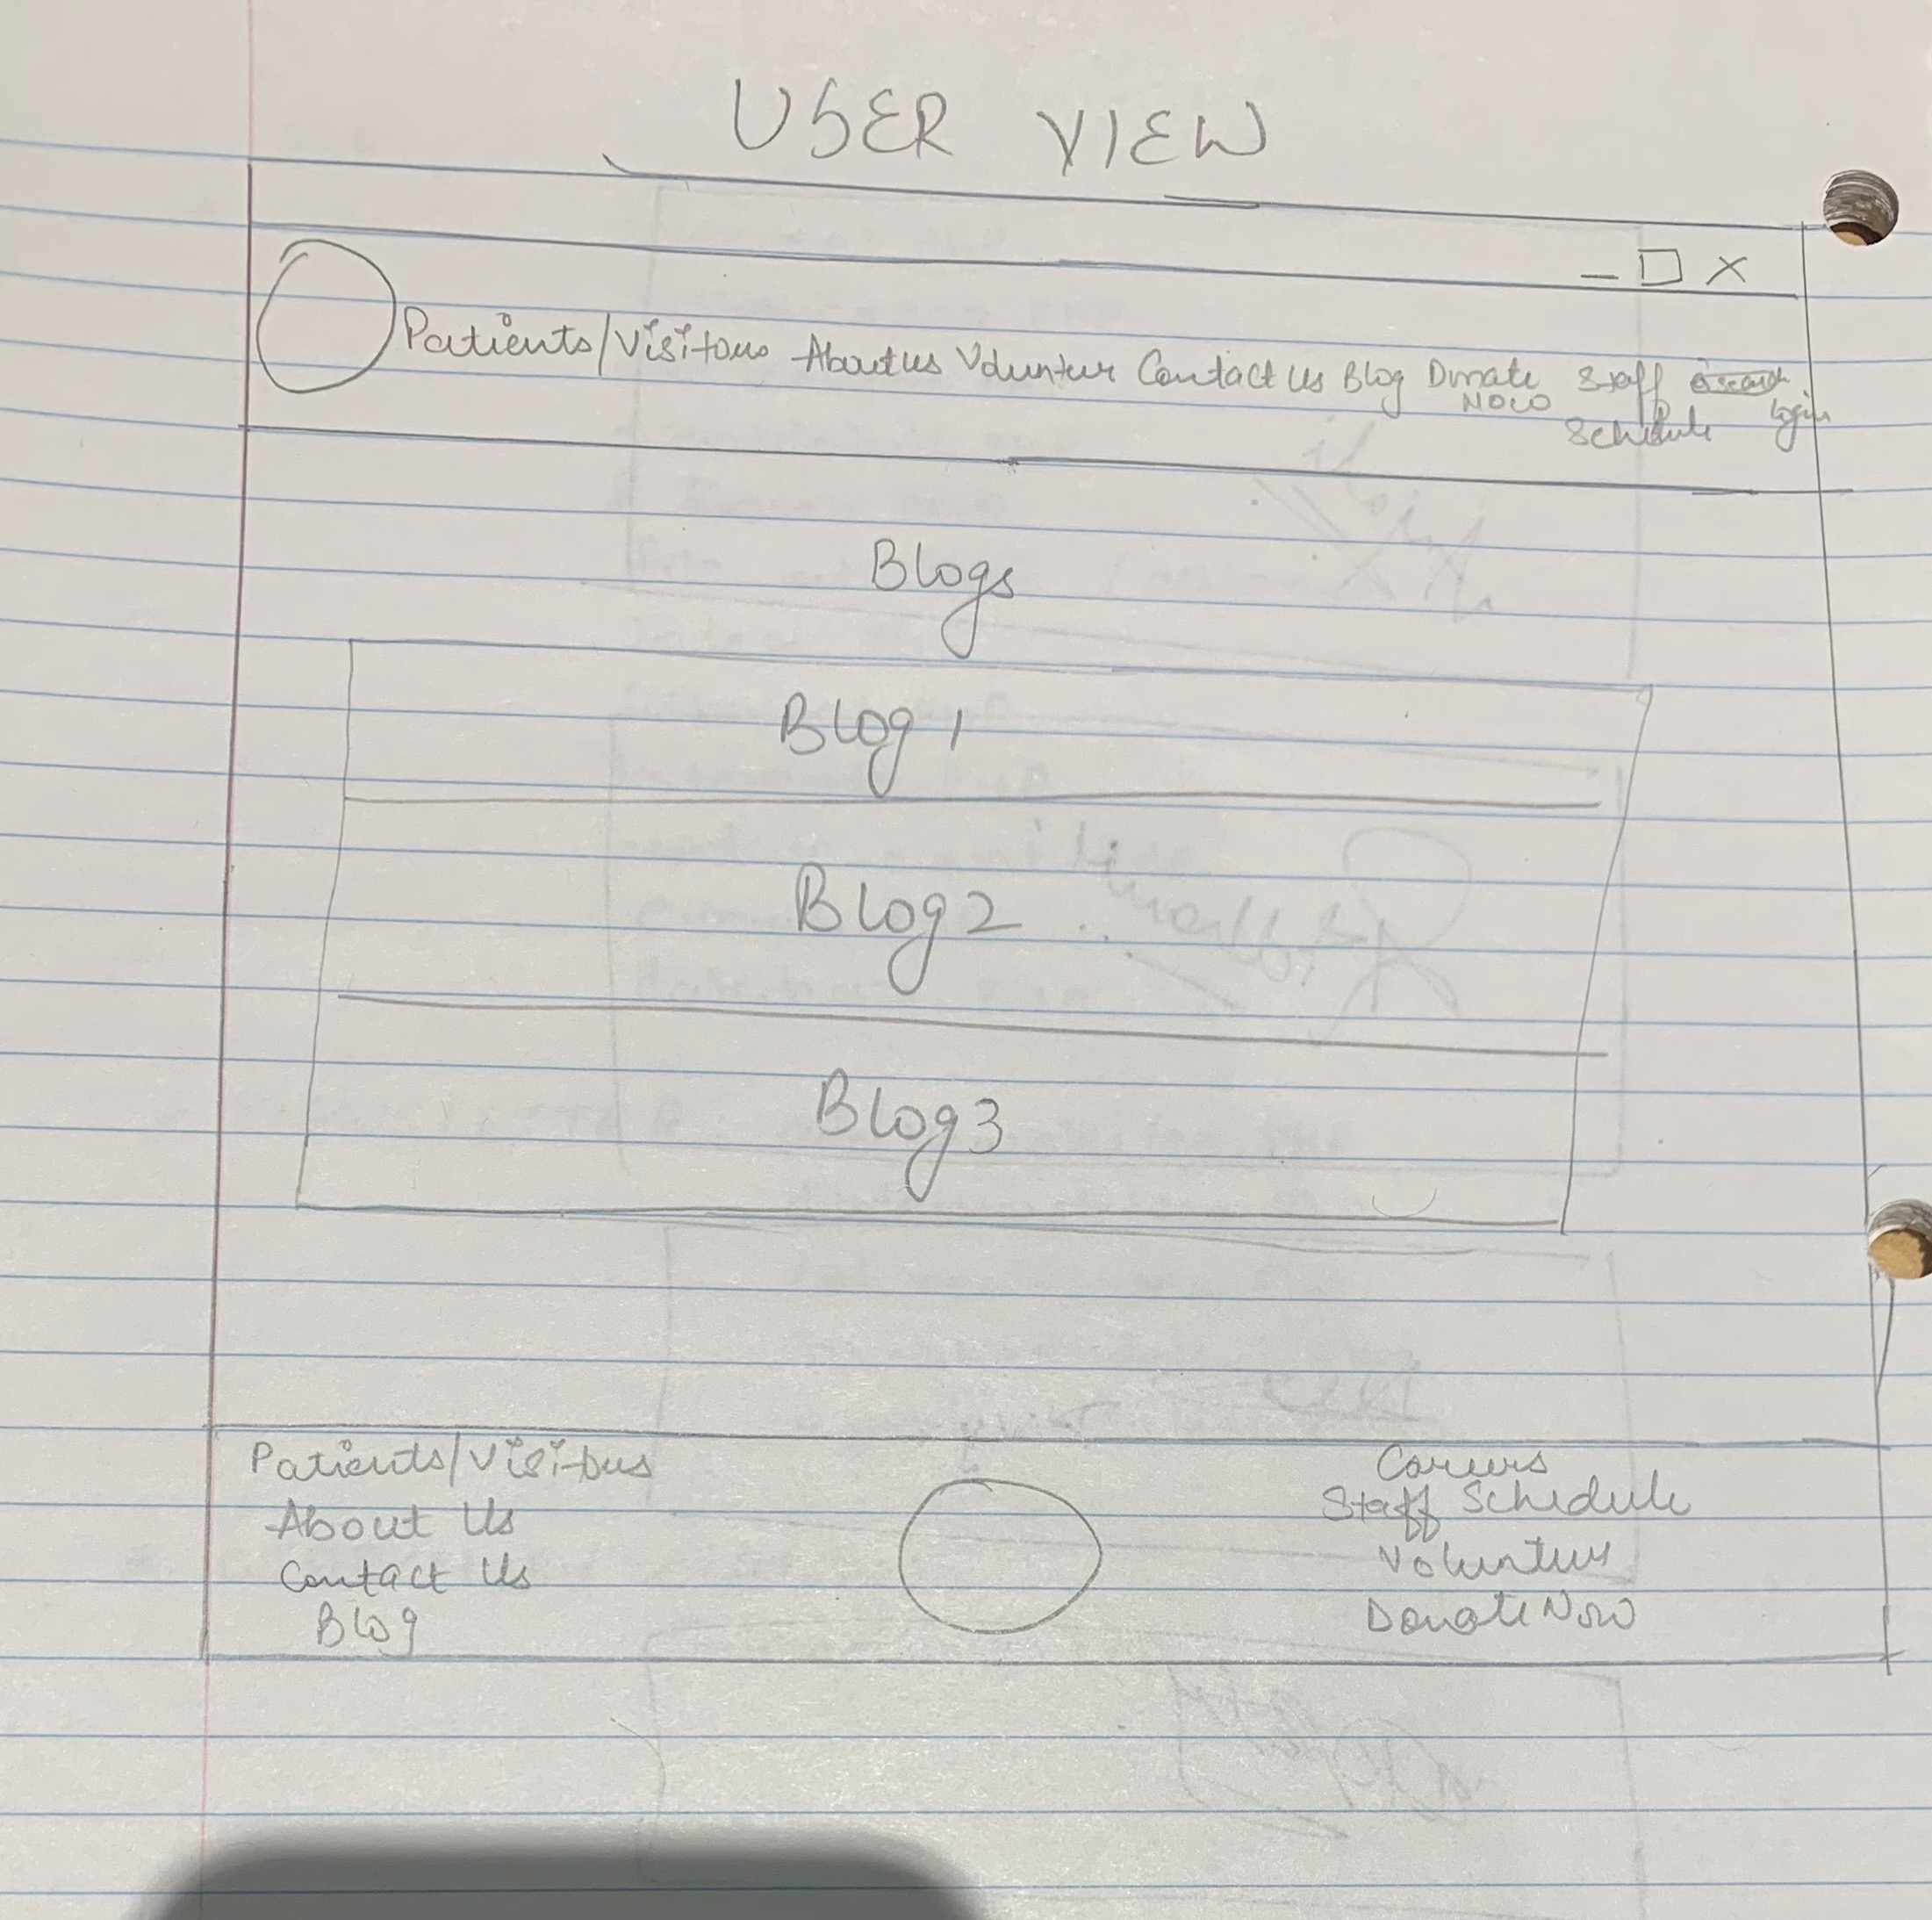 USER VIEW
Patients/Visitors About us Volunteer Contact Us Blog Donate Now Staff Schedule search login
Blogs
Blog 1
Blog 2
Blog 3
Patients/Visitors
About Us
Contact Us
Blog
Careers
Staff Schedule
Volunteer
Donate Now